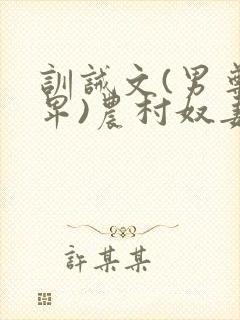 訓誡文(男尊
卑)農村奴妻
許某某